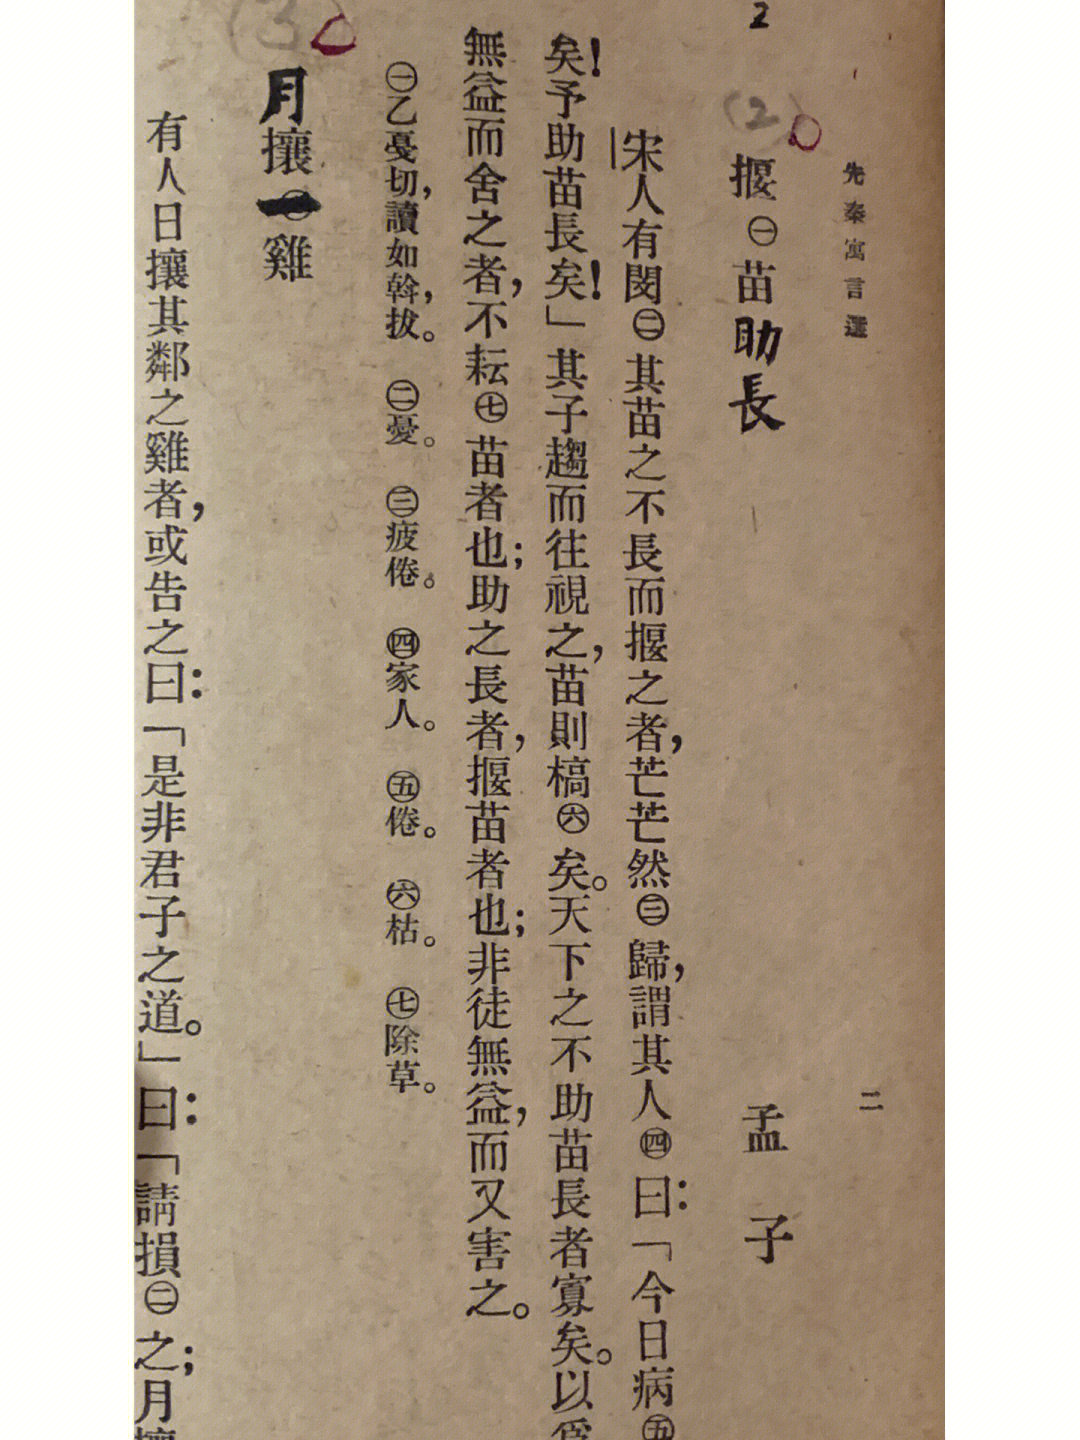 2
先秦寓言選
二
(2)
揠㊀苗助長
孟子
宋人有閔㊁其苗之不長而揠之者，芒芒然㊂歸，謂其人㊃曰：「今日病㊄
矣！予助苗長矣！」其子趨而往視之，苗則槁㊅矣。天下之不助苗長者寡矣。以爲
無益而舍之者，不耘㊆苗者也；助之長者，揠苗者也；非徒無益，而又害之。
㊀乙憂切，讀如斡，拔。 ㊁憂。 ㊂疲倦。 ㊃家人。 ㊄倦。 ㊅枯。 ㊆除草。
(3)
月攘一雞
有人日攘其鄰之雞者，或告之曰：「是非君子之道。」曰：「請損㊁之；月攘